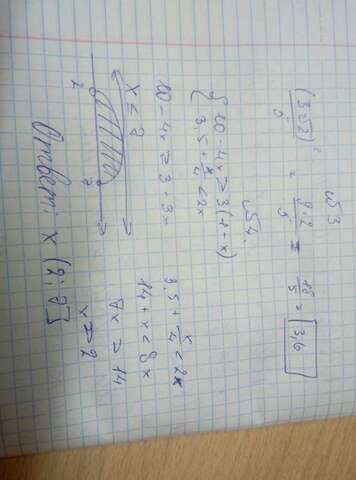 №3
(3√2)² / 5 = 9·2 / 5 = 18/5 = 3,6
№4.
{ 10 - 4x ≥ 3(1-x)
3,5 + x/4 < 2x
10 - 4x ≥ 3 - 3x
x ≤ 7
3,5 + x/4 < 2x
14 + x < 8x
7x > 14
x > 2
2 7
Ответ: x (2;7]